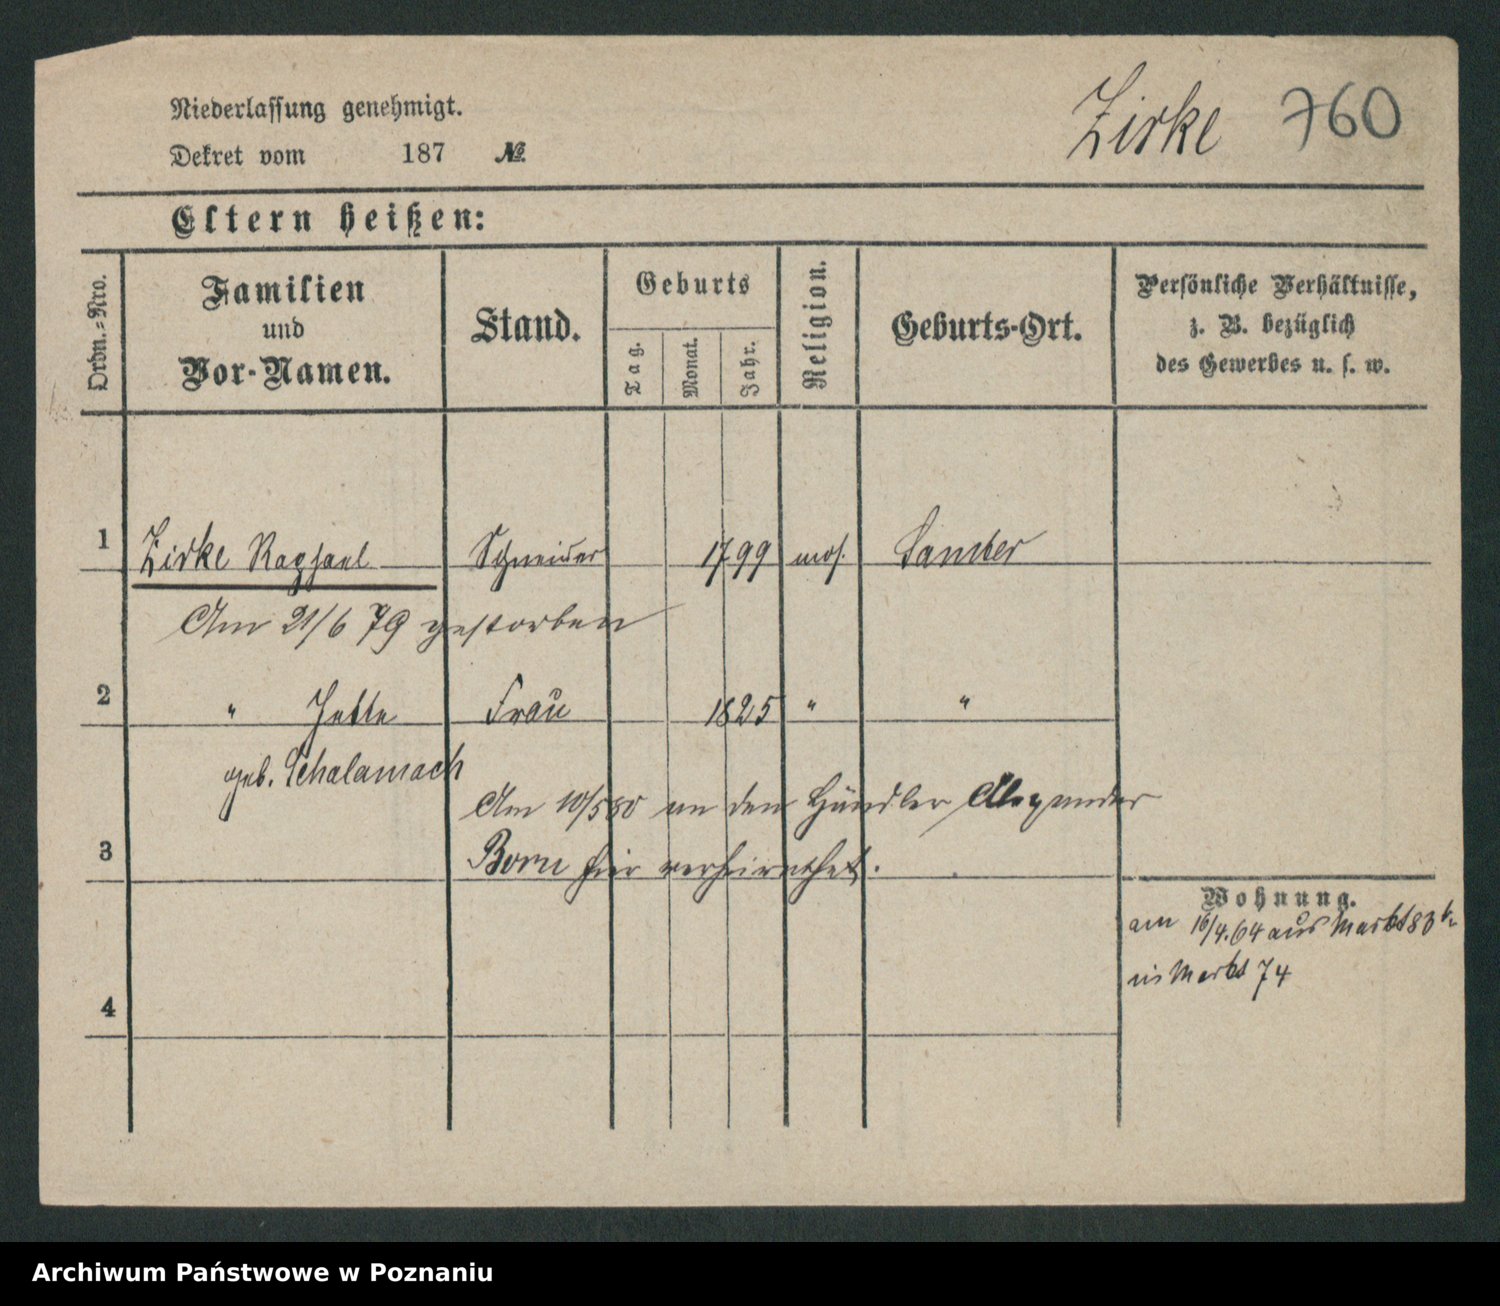 Niederlassung genehmigt.
Dekret vom 187 №
Zirke 760
Eltern heißen:
Ordn.-Nro.
Familien
und
Vor-Namen.
Stand.
Geburts
Tag.
Monat.
Jahr.
Religion.
Geburts-Ort.
Persönliche Verhältnisse,
z. B. bezüglich
des Gewerbes u. s. w.
1 Zirke Raphael Schneider 1799 mos. Samter
Am 21/6 79 gestorben
2 " Jette Frau 1825 " "
geb. Schalamach
Am 10/5 80 an den Händler Alexander
3 Born hier verheirathet.
Wohnung.
am 16/4.64 aus Markt 83
in Markt 74
4
Archiwum Państwowe w Poznaniu